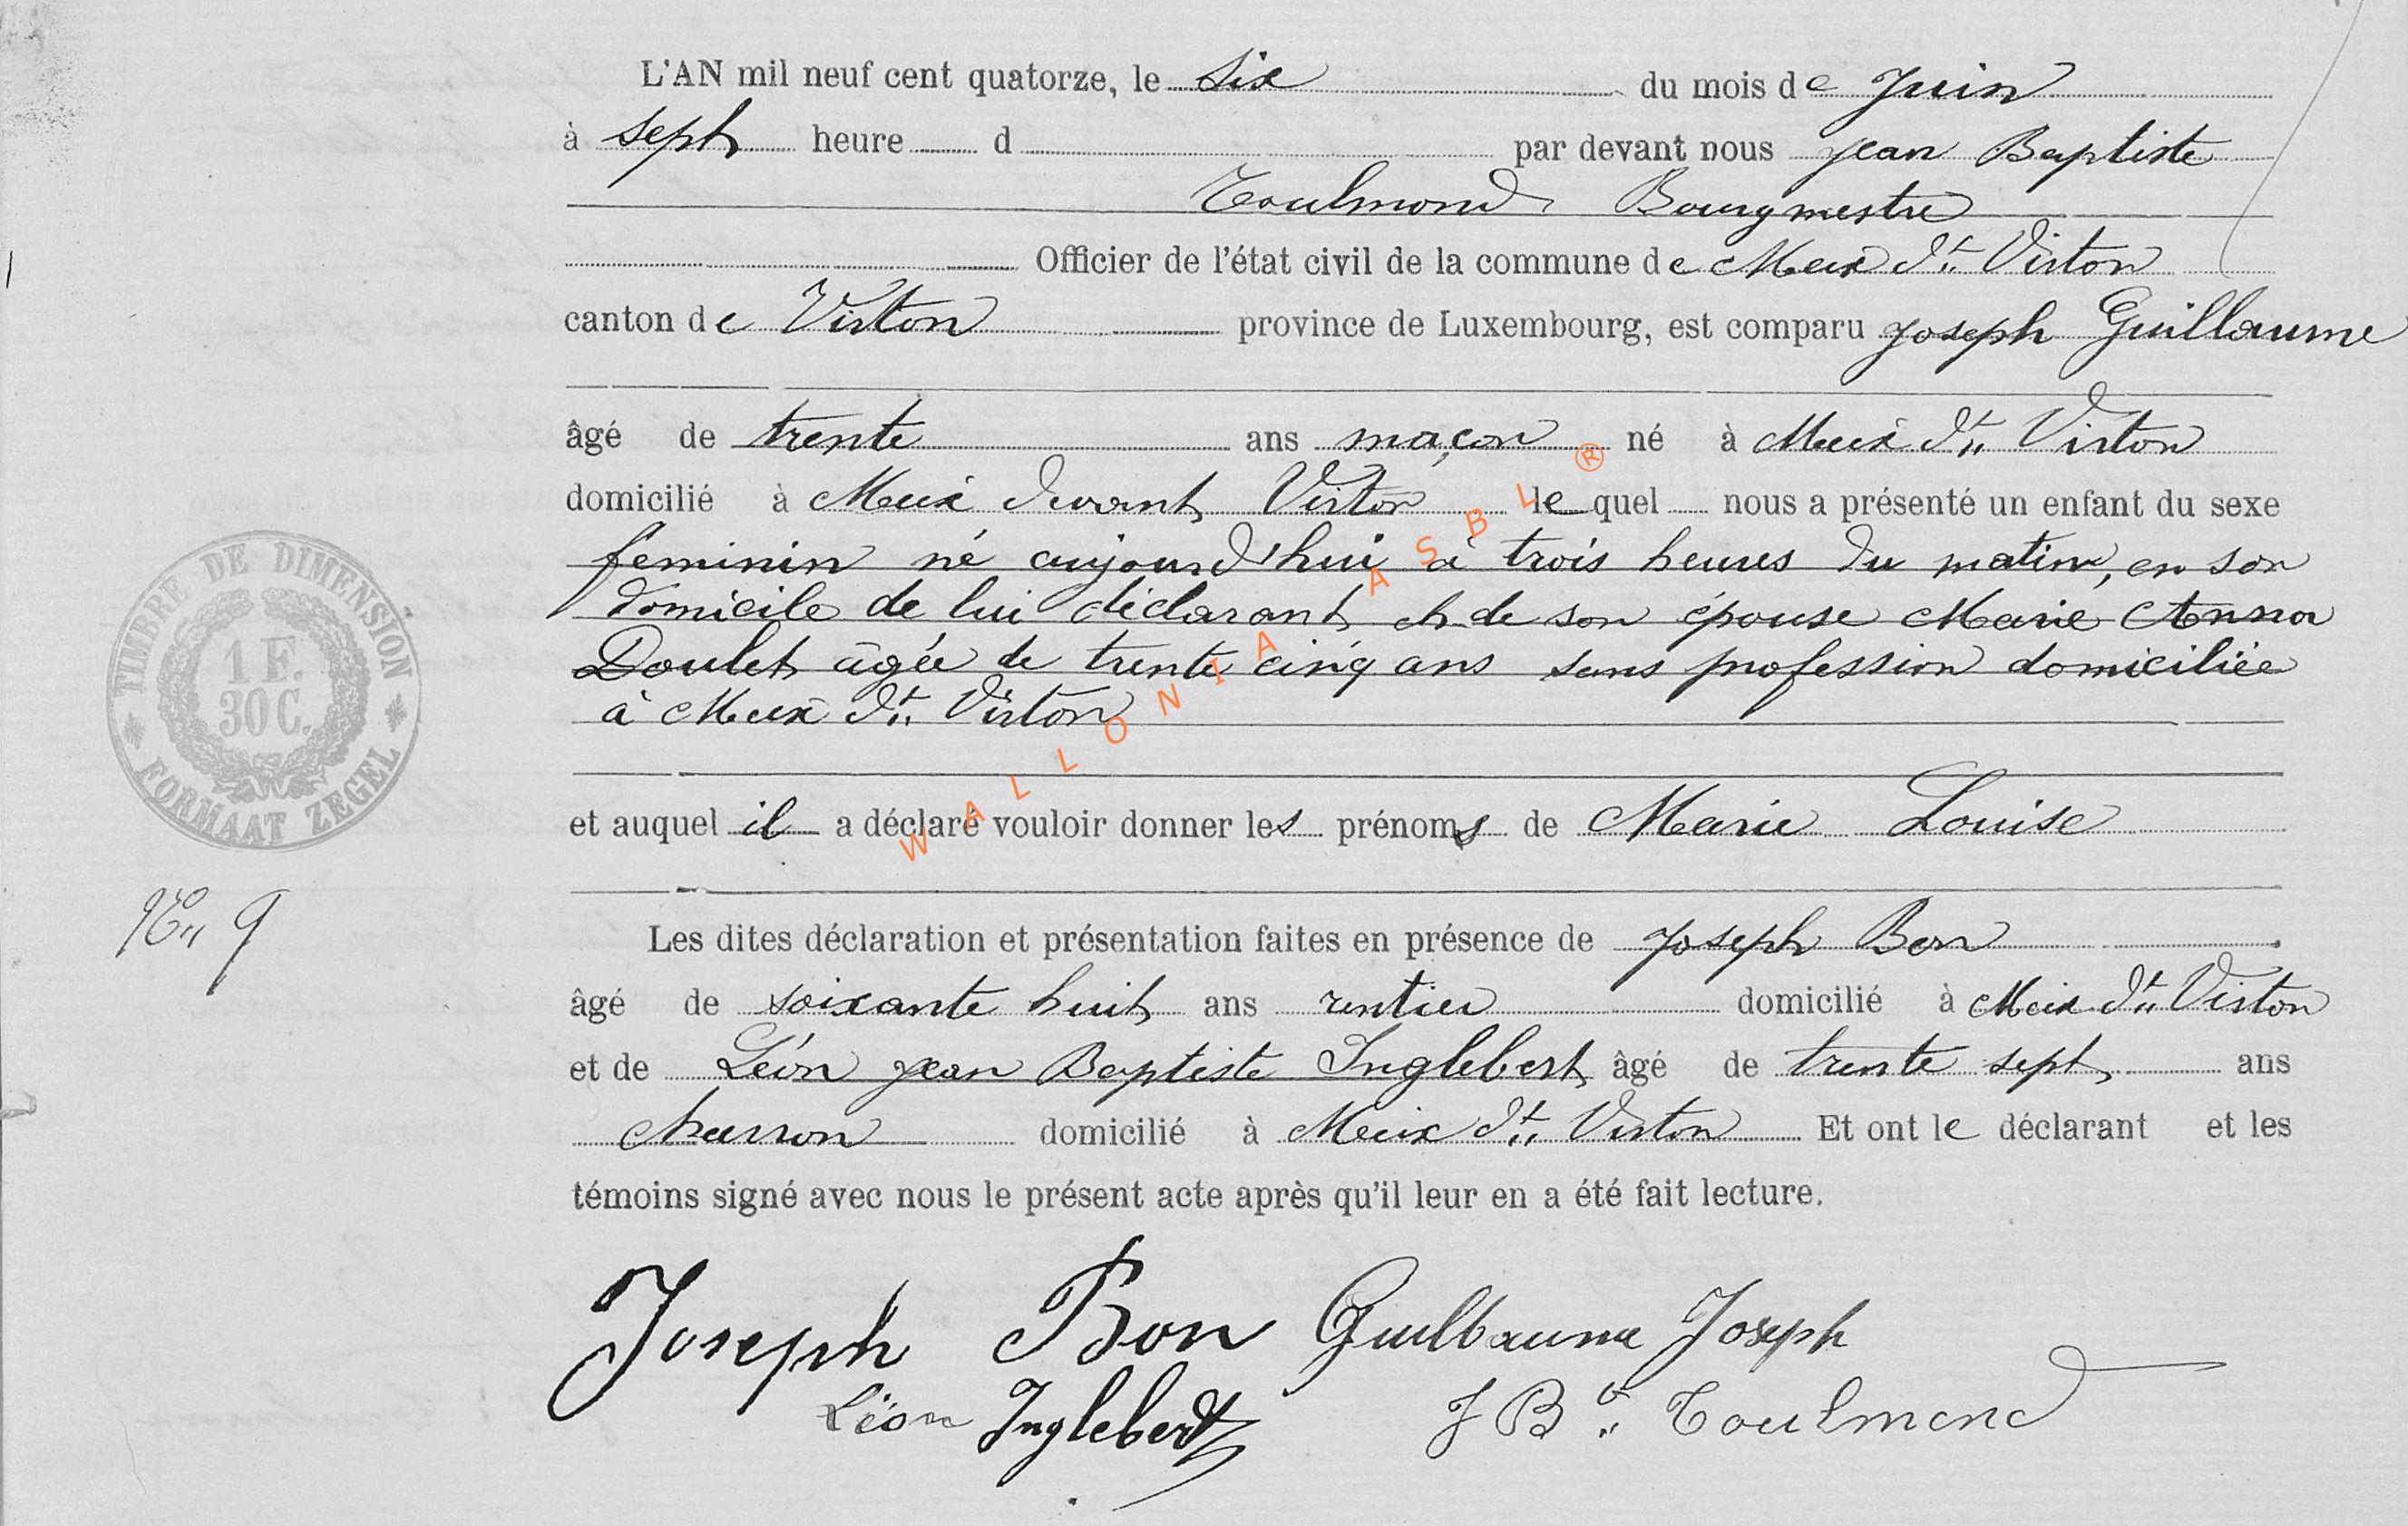 L'AN mil neuf cent quatorze, le six du mois de Juin
à sept heure d par devant nous Jean Baptiste
Toulmond Bourgmestre
Officier de l'état civil de la commune de Meix dt Virton
canton de Virton province de Luxembourg, est comparu Joseph Guillaume
âgé de trente ans maçon né à Meix dt Virton
domicilié à Meix devant Virton lequel nous a présenté un enfant du sexe
féminin né aujourd'hui à trois heures du matin, en son
domicile de lui déclarant et de son épouse Marie Anna
Doulet âgée de trente cinq ans sans profession domiciliée
à Meix dt Virton
et auquel il a déclaré vouloir donner les prénoms de Marie Louise
Les dites déclaration et présentation faites en présence de Joseph Bon
âgé de soixante huit ans rentier domicilié à Meix dt Virton
et de Léon Jean Baptiste Inglebert âgé de trente sept ans
charron domicilié à Meix dt Virton Et ont le déclarant et les
témoins signé avec nous le présent acte après qu'il leur en a été fait lecture.
Joseph Bon Guillaume Joseph
Léon Inglebert J Bte Toulmond
TIMBRE DE DIMENSION
1 F.
30 C.
FORMAAT ZEGEL
No 9
WALLONIA ASBL ®